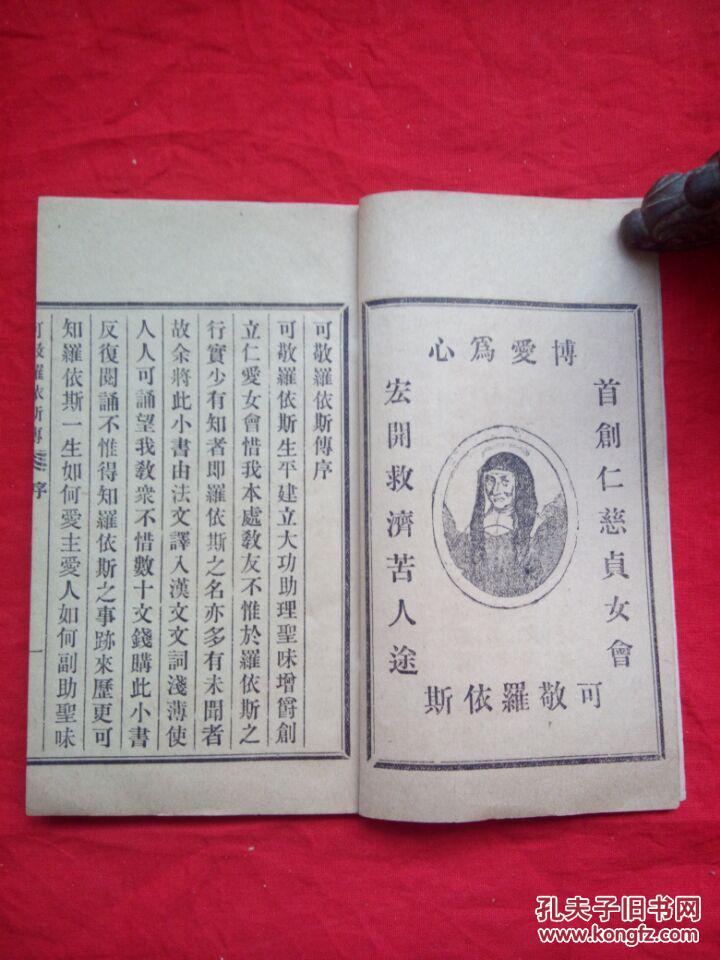 博愛爲心
首創仁慈貞女會
宏開救濟苦人途
可敬羅依斯
可敬羅依斯傳序
可敬羅依斯生平建立大功助理聖味增爵創
立仁愛女會惜我本處敎友不惟於羅依斯之
行實少有知者卽羅依斯之名亦多有未聞者
故余將此小書由法文譯入漢文文詞淺薄使
人人可誦望我敎衆不惜數十文錢購此小書
反復閱誦不惟得知羅依斯之事跡來歷更可
知羅依斯一生如何愛主愛人如何副助聖味
可敬羅依斯傳 序 一
孔夫子旧书网
www.kongfz.com